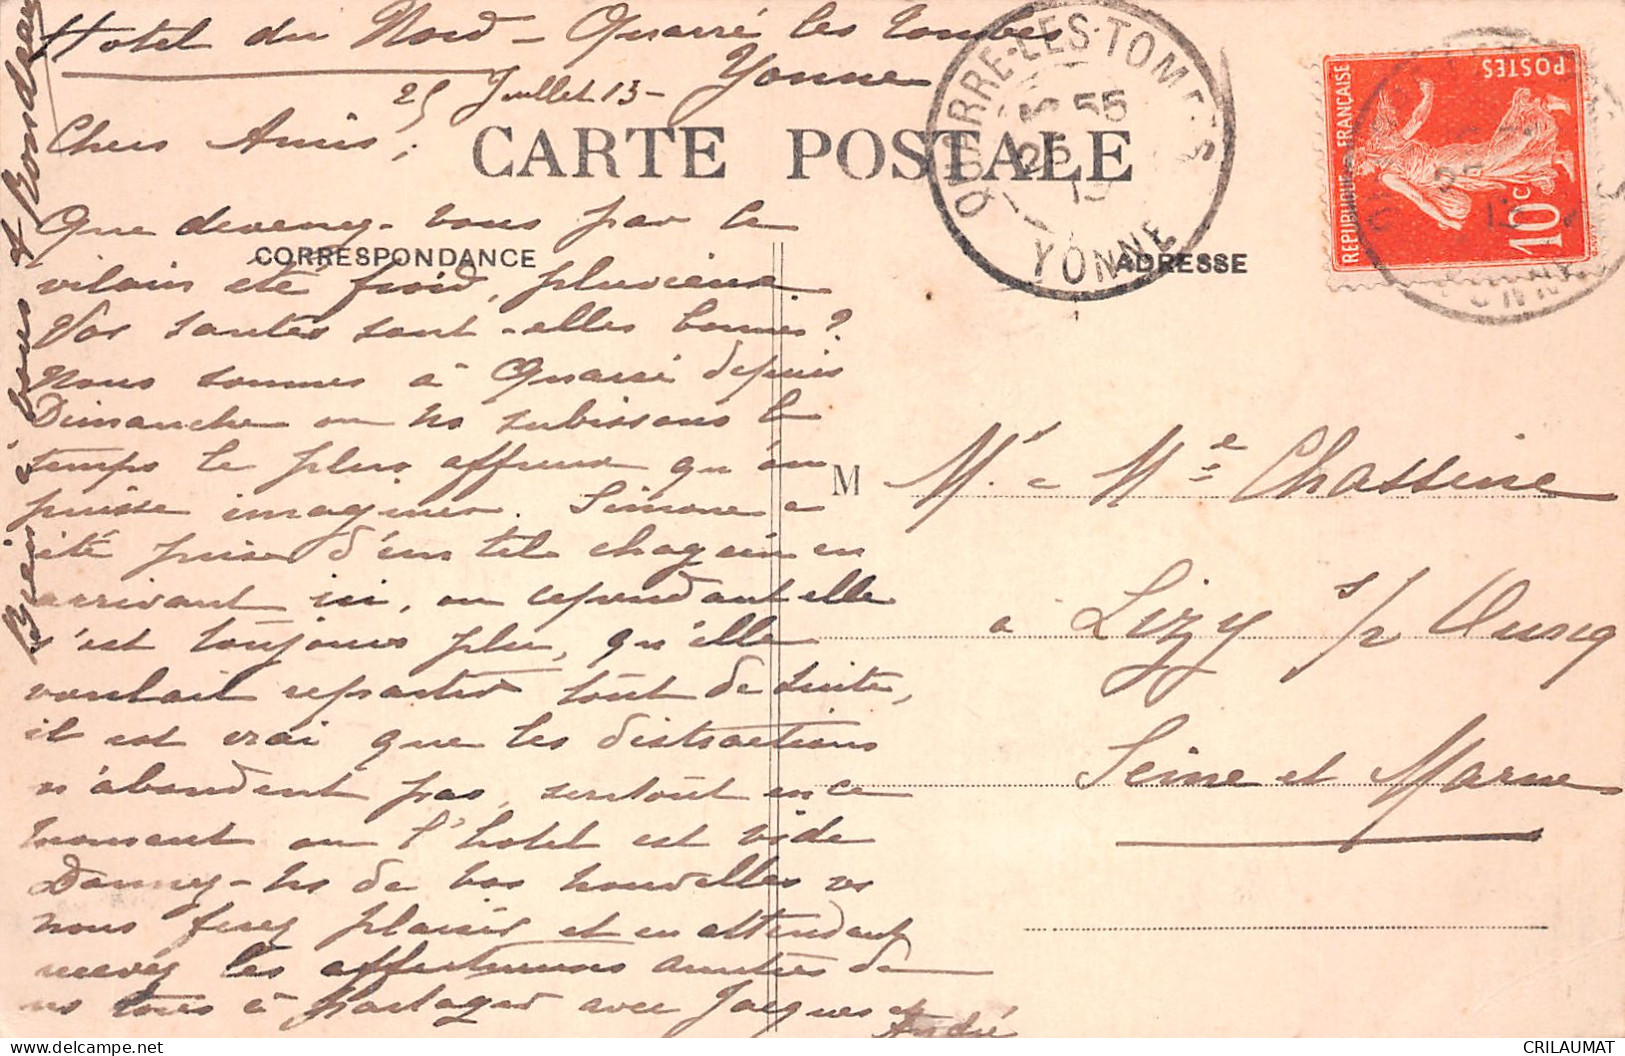 Hotel du Nord - Quarré les Tombes
Yonne
25 Juillet 13 -
Chers Amis,
CARTE POSTALE
CORRESPONDANCE
ADRESSE
Que devenez-vous par le
vilain été froid, pluvieux
Vos santés sont-elles bonnes ?
Nous sommes à Quarré depuis
Dimanche où ns subissons le
temps le plus affreux qu'on
puisse imaginer. Simone a
été prise d'un tel chagrin en
arrivant ici, où cependant elle
s'est toujours plu, qu'elle
voulait repartir tout de suite,
il est vrai que les distractions
n'abondent pas, surtout en ce
moment où l'hotel est vide
Donnez-ns de vos nouvelles vs
nous ferez plaisir et en attendant
recevez les affectueuses amitiés de
ns tous à partager avec Jacques et
André
Bien à vous
QUARRE-LES-TOMBES
YONNE
REPUBLIQUE FRANÇAISE
POSTES
10c
M Mr & Me Chassine
à Lizy s/ Ourcq
Seine et Marne
CRILAUMAT